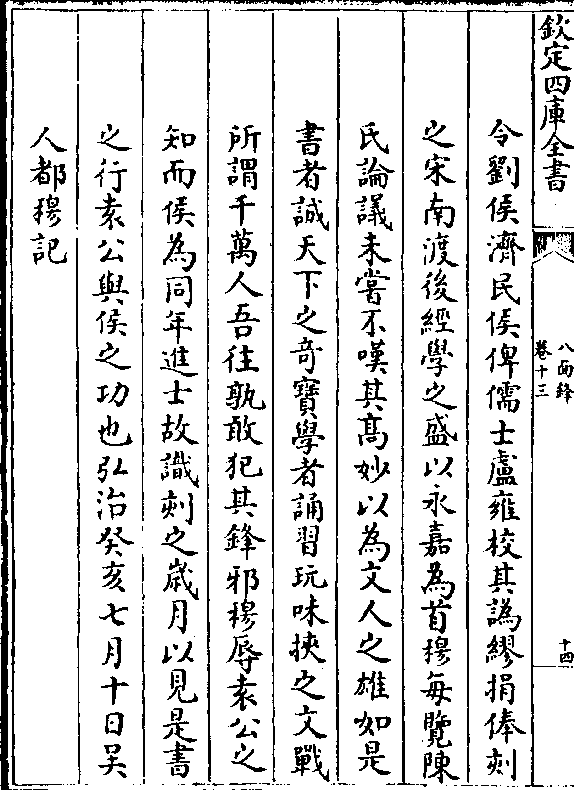 欽定四庫全書
八面鋒
卷十三
十四
令劉侯濟民侯俾儒士盧雍校其譌繆捐俸刻
之宋南渡後經學之盛以永嘉為首穆每覽陳
氏論議未嘗不嘆其髙妙以為文人之雄如是
書者誠天下之竒寶學者誦習玩味挾之文戰
所謂千萬人吾往孰敢犯其鋒邪穆辱袁公之
知而侯為同年進士故識刻之嵗月以見是書
之行袁公與侯之功也弘治癸亥七月十日吳
人都穆記